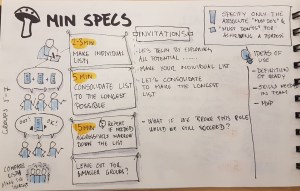 MIN SPECS
INVITATIONS
SPECIFY ONLY THE
ABSOLUTE "MUST DO'S" &
"MUST DONTS" FOR
ACHIEVING A PURPOSE
2-5 MIN
MAKE INDIVIDUAL
LISTS
- LET'S BEGIN BY EXPLORING
ALL POTENTIAL
- MAKE YOUR INDIVIDUAL LIST
5 MIN
CONSOLIDATE LIST
TO THE LONGEST
POSSIBLE
- LET'S CONSOLIDATE
TO MAKE THE LONGEST
LIST
IDEAS OF
USE
- DEFINITION
OF READY
- SKILLS NEEDED
IN TEAM
- MVP
GROUPS
OUT
OK!
15 MIN
REPEAT
IF NEEDED
NARROW
DOWN THE LIST
- WHAT IF WE BROKE THIS RULE
WOULD WE STILL SUCCEED?
COMPARE
LEAVE OUT FOR
SMALLER GROUPS?